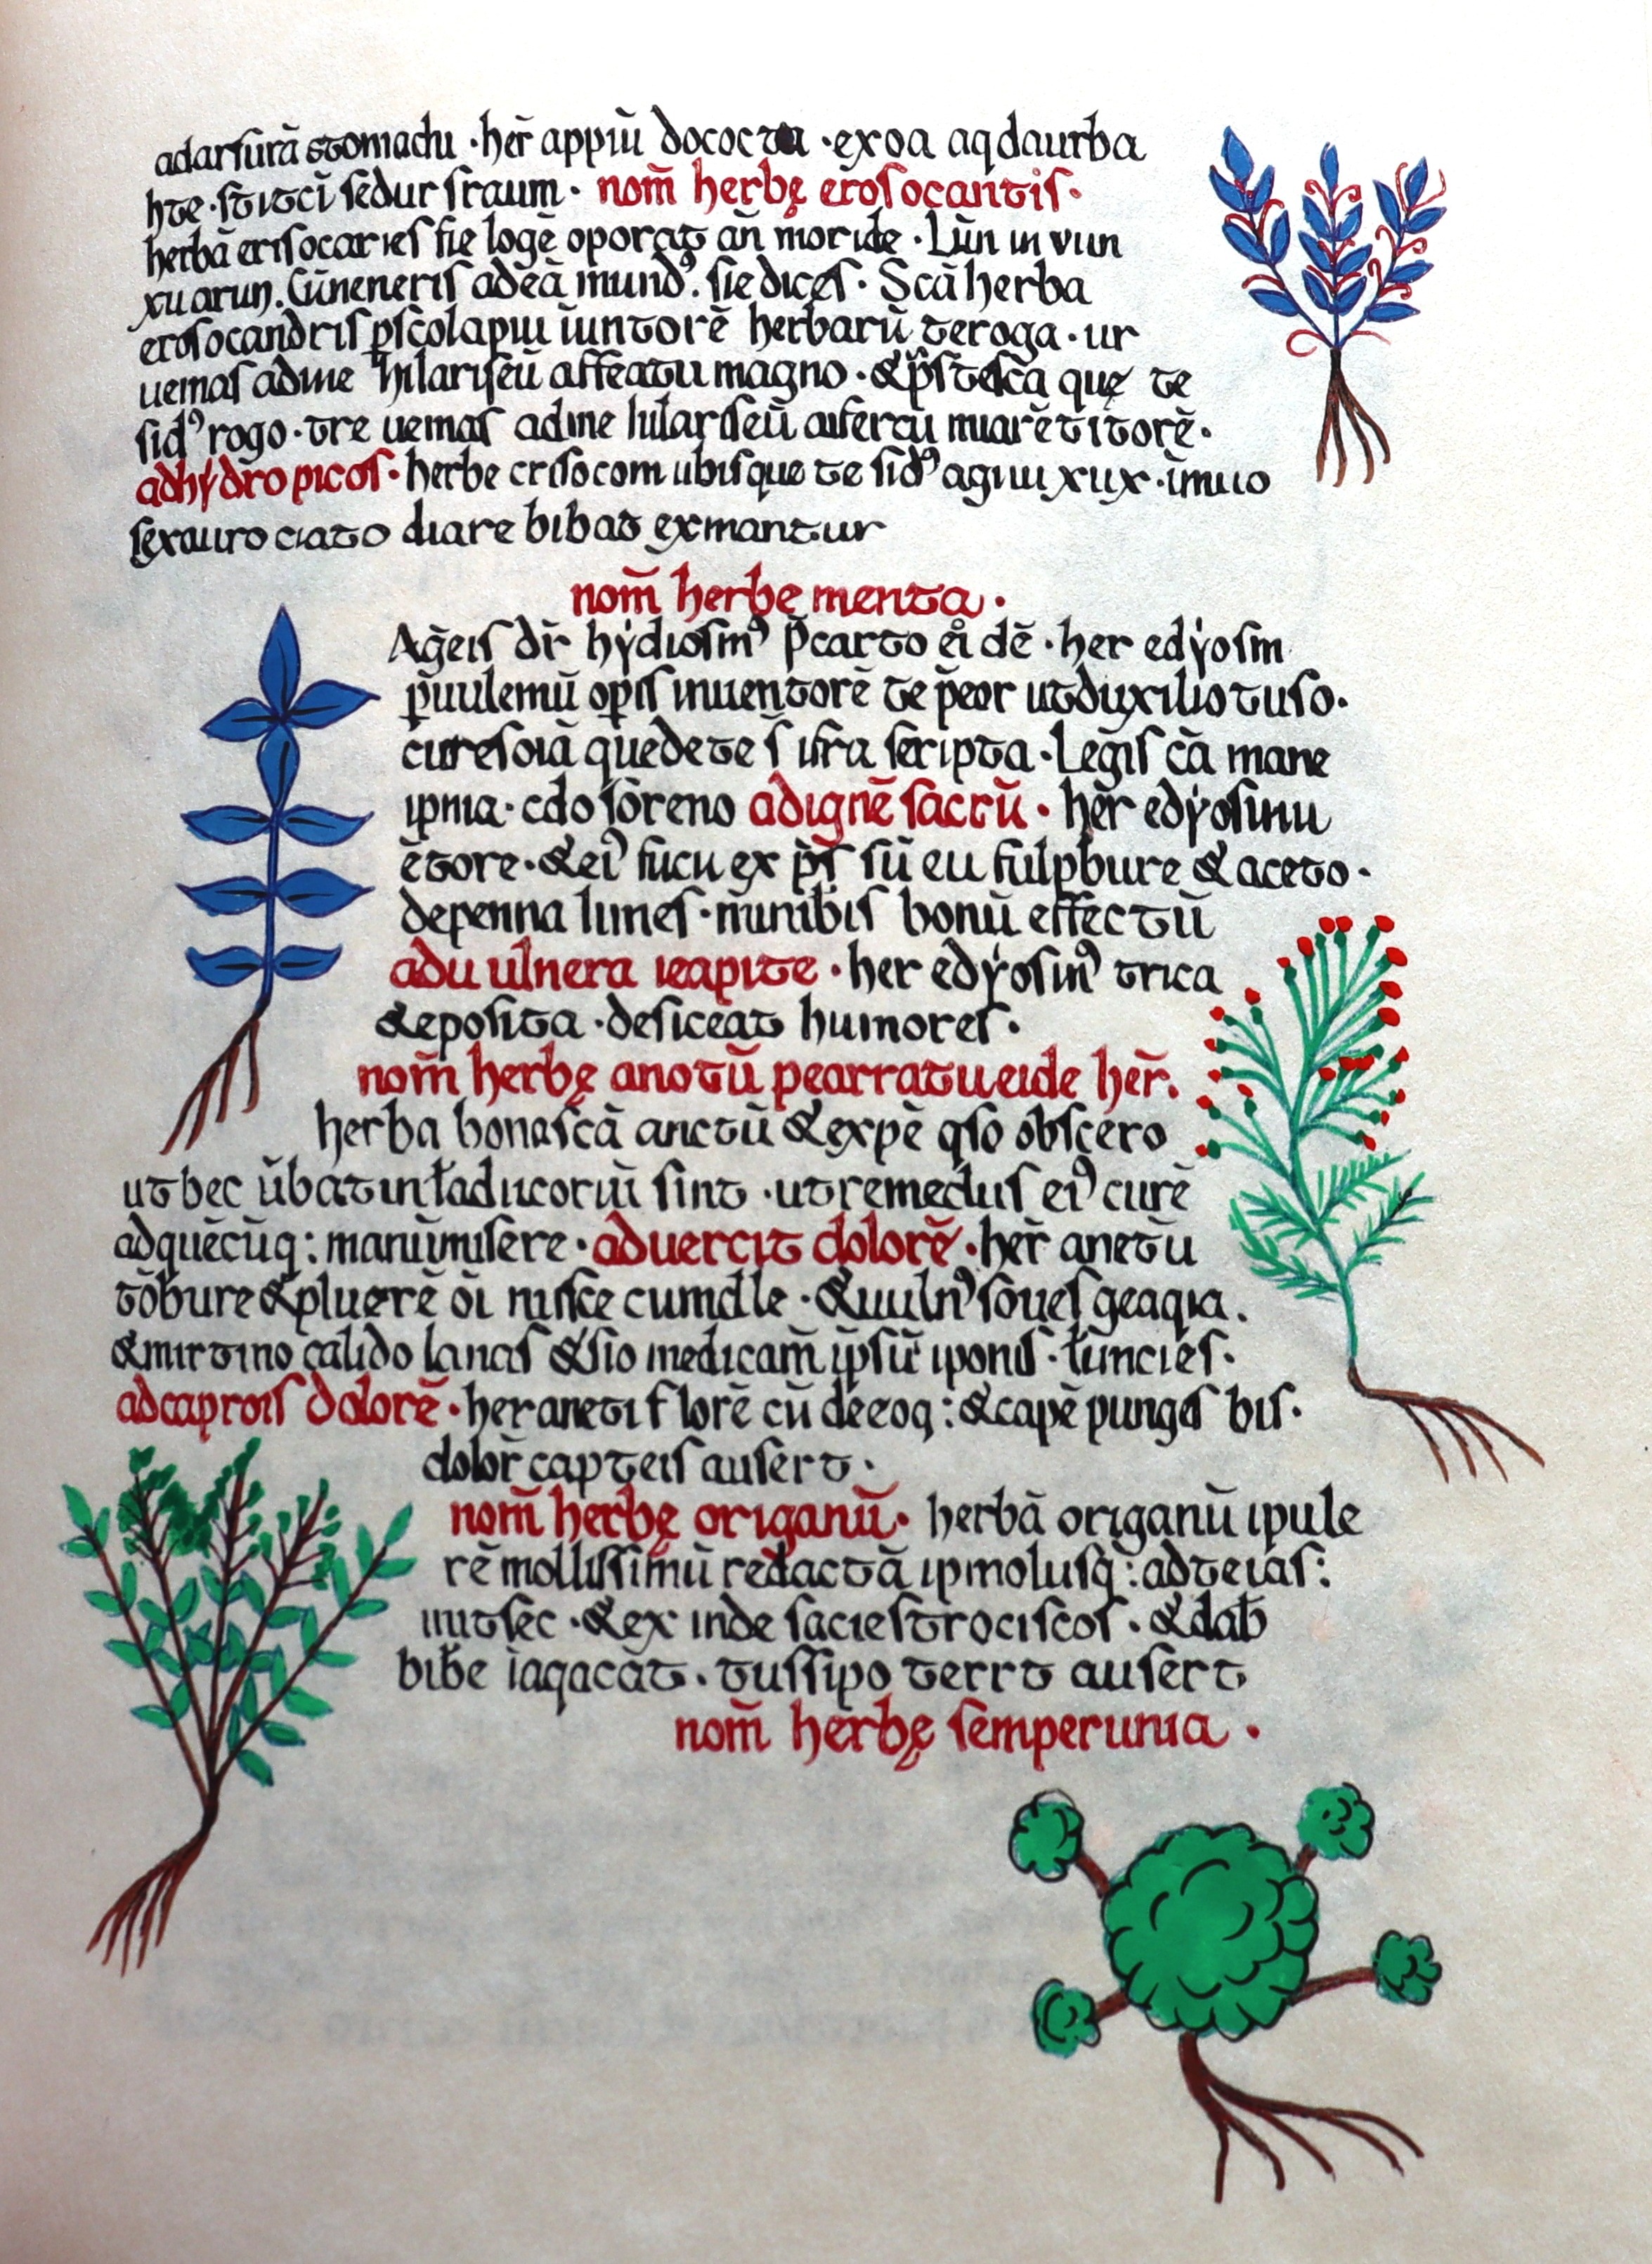 adarſurā stomachi · her̄ appiū dococta · exoa aqdaurba
hte · ſtitcī ſedur ſraum · nom̄ herbę eroſocantiſ ·
herbā criſocarieſ ſię logē oporat an̄ moride · Lūn in vun
xu arun . Cūneneriſ adēā mund⁹ . ſie diceſ · Scā herba
eroſocandriſ pſcolapiu iuntorē herbarū teroga · ur
uemaſ adme hilariſeū affeatu magno · &pſteſca quę te
ſid⁹ rogo · tre uemaſ adme hilariſeū aifercū miarētitorē ·
adhẏdro picoſ · herbe criſocom ubiſque te ſid⁹ agiu xux · imuo
ſexauro ciato diare bibat exmantur
nom̄ herbę menta ·
Aḡeiſ dr̄ hẏdioſm⁹ p̄carto ei dē · her edẏoſm
p̄uulemū opiſ inuentorē te p̄eor utduxilio tuſo ·
cureſoiā quedete ſ̄ ifra ſcripta · Legiſ cā mane
ipma · cdo ſōreno adignē ſacrū · her̄ edẏoſinu
ētore · &ei⁹ ſucu ex pſ̄ ſū eu ſulpbure & aceto ·
depenna lineſ · mınıbiſ bonū effectū
adu ulnera icapite · her edẏoſm⁹ trica
&epoſita · deſiceat humoreſ ·
nom̄ herbę anotū pearratu eide her̄.
herba bonaſcā anctū &expē qſo obſcero
ut bec ūbatintaducoriū ſint · utremediiſ ei⁹ curē
adquēcūq: manūmiſere · aduercit dolorē · her̄ anetū
tōbure &pluerē ōi niſce cumdle · &uuln⁹ ſoueſ geaqia .
&mirtino calido lanaſ &ſio medicam̄ ipſū iponiſ · tuncieſ ·
adcaproiſ dolorē · her aneti florē cū deeoq: &capē pungeſ biſ ·
dolor̄ capteiſ auſert ·
nom̄ herbę origanū · herbā origanū ipule
rē molliſſimū redactā ipmoluſq: adteiaſ:
mitſec · &ex inde ſacieſtrociſcoſ · &dab̄
bibe iaqacāt · tuſſipo terrt auſert
nom̄ herbę ſemperuiuia ·